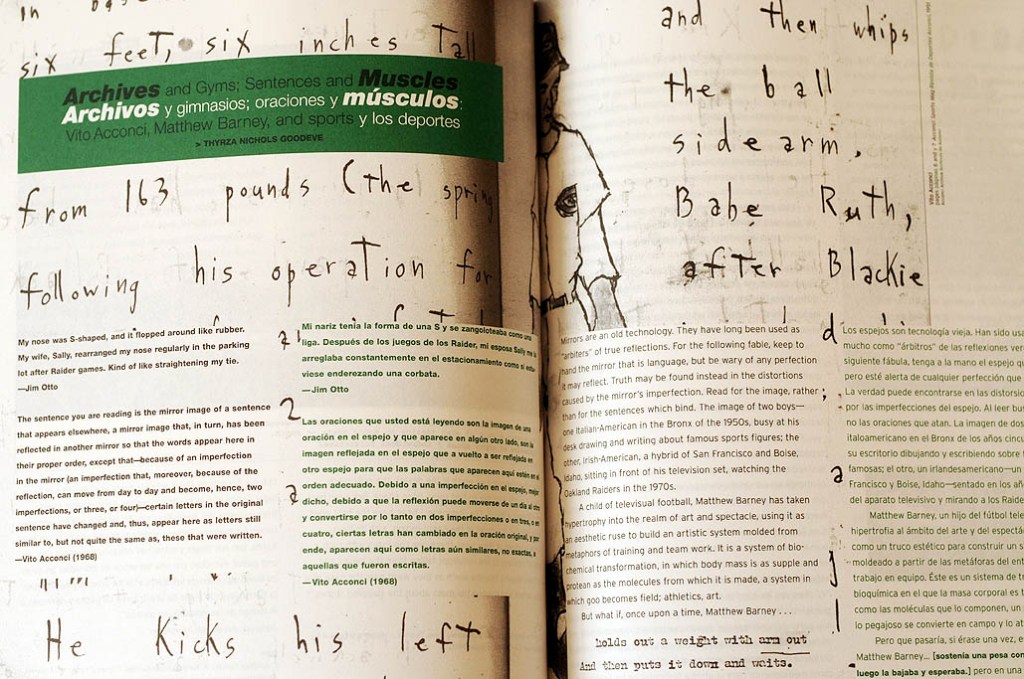 six feet, six inches Tall
Archives and Gyms; Sentences and Muscles
Archivos y gimnasios; oraciones y músculos:
Vito Acconci, Matthew Barney, and sports y los deportes
> THYRZA NICHOLS GOODEVE
from 163 pounds (the spring
following his operation for
My nose was S-shaped, and it flopped around like rubber.
My wife, Sally, rearranged my nose regularly in the parking
lot after Raider games. Kind of like straightening my tie.
—Jim Otto
The sentence you are reading is the mirror image of a sentence
that appears elsewhere, a mirror image that, in turn, has been
reflected in another mirror so that the words appear here in
their proper order, except that—because of an imperfection
in the mirror (an imperfection that, moreover, because of the
reflection, can move from day to day and become, hence, two
imperfections, or three, or four)—certain letters in the original
sentence have changed and, thus, appear here as letters still
similar to, but not quite the same as, these that were written.
—Vito Acconci (1968)
Mi nariz tenía la forma de una S y se zangoloteaba como una
liga. Después de los juegos de los Raider, mi esposa Sally me la
arreglaba constantemente en el estacionamiento como si estu-
viese enderezando una corbata.
—Jim Otto
Las oraciones que usted está leyendo son la imagen de una
oración en el espejo y que aparece en algún otro lado, son la
imagen reflejada en el espejo que a vuelto a ser reflejada en
otro espejo para que las palabras que aparecen aquí estén en el
orden adecuado. Debido a una imperfección en el espejo, mejor
dicho, debido a que la reflexión puede moverse de un día al otro
y convertirse por lo tanto en dos imperfecciones o en tres, o en
cuatro, ciertas letras han cambiado en la oración original, y por
ende, aparecen aquí como letras aún similares, no exactas, a
aquellas que fueron escritas.
—Vito Acconci (1968)
He Kicks his left
and then whips
the ball
side arm,
Babe Ruth,
after Blackie
Vito Acconci
Mirrors are an old technology. They have long been used as
"arbiters" of true reflections. For the following fable, keep to
hand the mirror that is language, but be wary of any perfection
it may reflect. Truth may be found instead in the distortions
caused by the mirror's imperfection. Read for the image, rather
than for the sentences which bind. The image of two boys—
one Italian-American in the Bronx of the 1950s, busy at his
desk drawing and writing about famous sports figures; the
other, Irish-American, a hybrid of San Francisco and Boise,
Idaho, sitting in front of his television set, watching the
Oakland Raiders in the 1970s.
A child of televisual football, Matthew Barney has taken
hypertrophy into the realm of art and spectacle, using it as
an aesthetic ruse to build an artistic system molded from
metaphors of training and team work. It is a system of bio-
chemical transformation, in which body mass is as supple and
protean as the molecules from which it is made, a system in
which goo becomes field; athletics, art.
But what if, once upon a time, Matthew Barney . . .
holds out a weight with arm out
And then puts it down and waits.
Los espejos son tecnología vieja. Han sido usa
mucho como "árbitros" de las reflexiones ver
siguiente fábula, tenga a la mano el espejo qu
pero esté alerta de cualquier perfección que
La verdad puede encontrarse en las distorsio
por las imperfecciones del espejo. Al leer bus
no las oraciones que atan. La imagen de dos
italoamericano en el Bronx de los años cincu
su escritorio dibujando y escribiendo sobre
famosas; el otro, un irlandesamericano—un
Francisco y Boise, Idaho—sentado en los añ
del aparato televisivo y mirando a los Raide
Matthew Barney, un hijo del fútbol tele
hipertrofia al ámbito del arte y del espectác
como un truco estético para construir un s
moldeado a partir de las metáforas del ent
trabajo en equipo. Éste es un sistema de tr
bioquímica en el que la masa corporal es t
como las moléculas que lo componen, un
lo pegajoso se convierte en campo y lo at
Pero que pasaría, si érase una vez, e
Matthew Barney... [sostenía una pesa con
luego la bajaba y esperaba.] pero en una